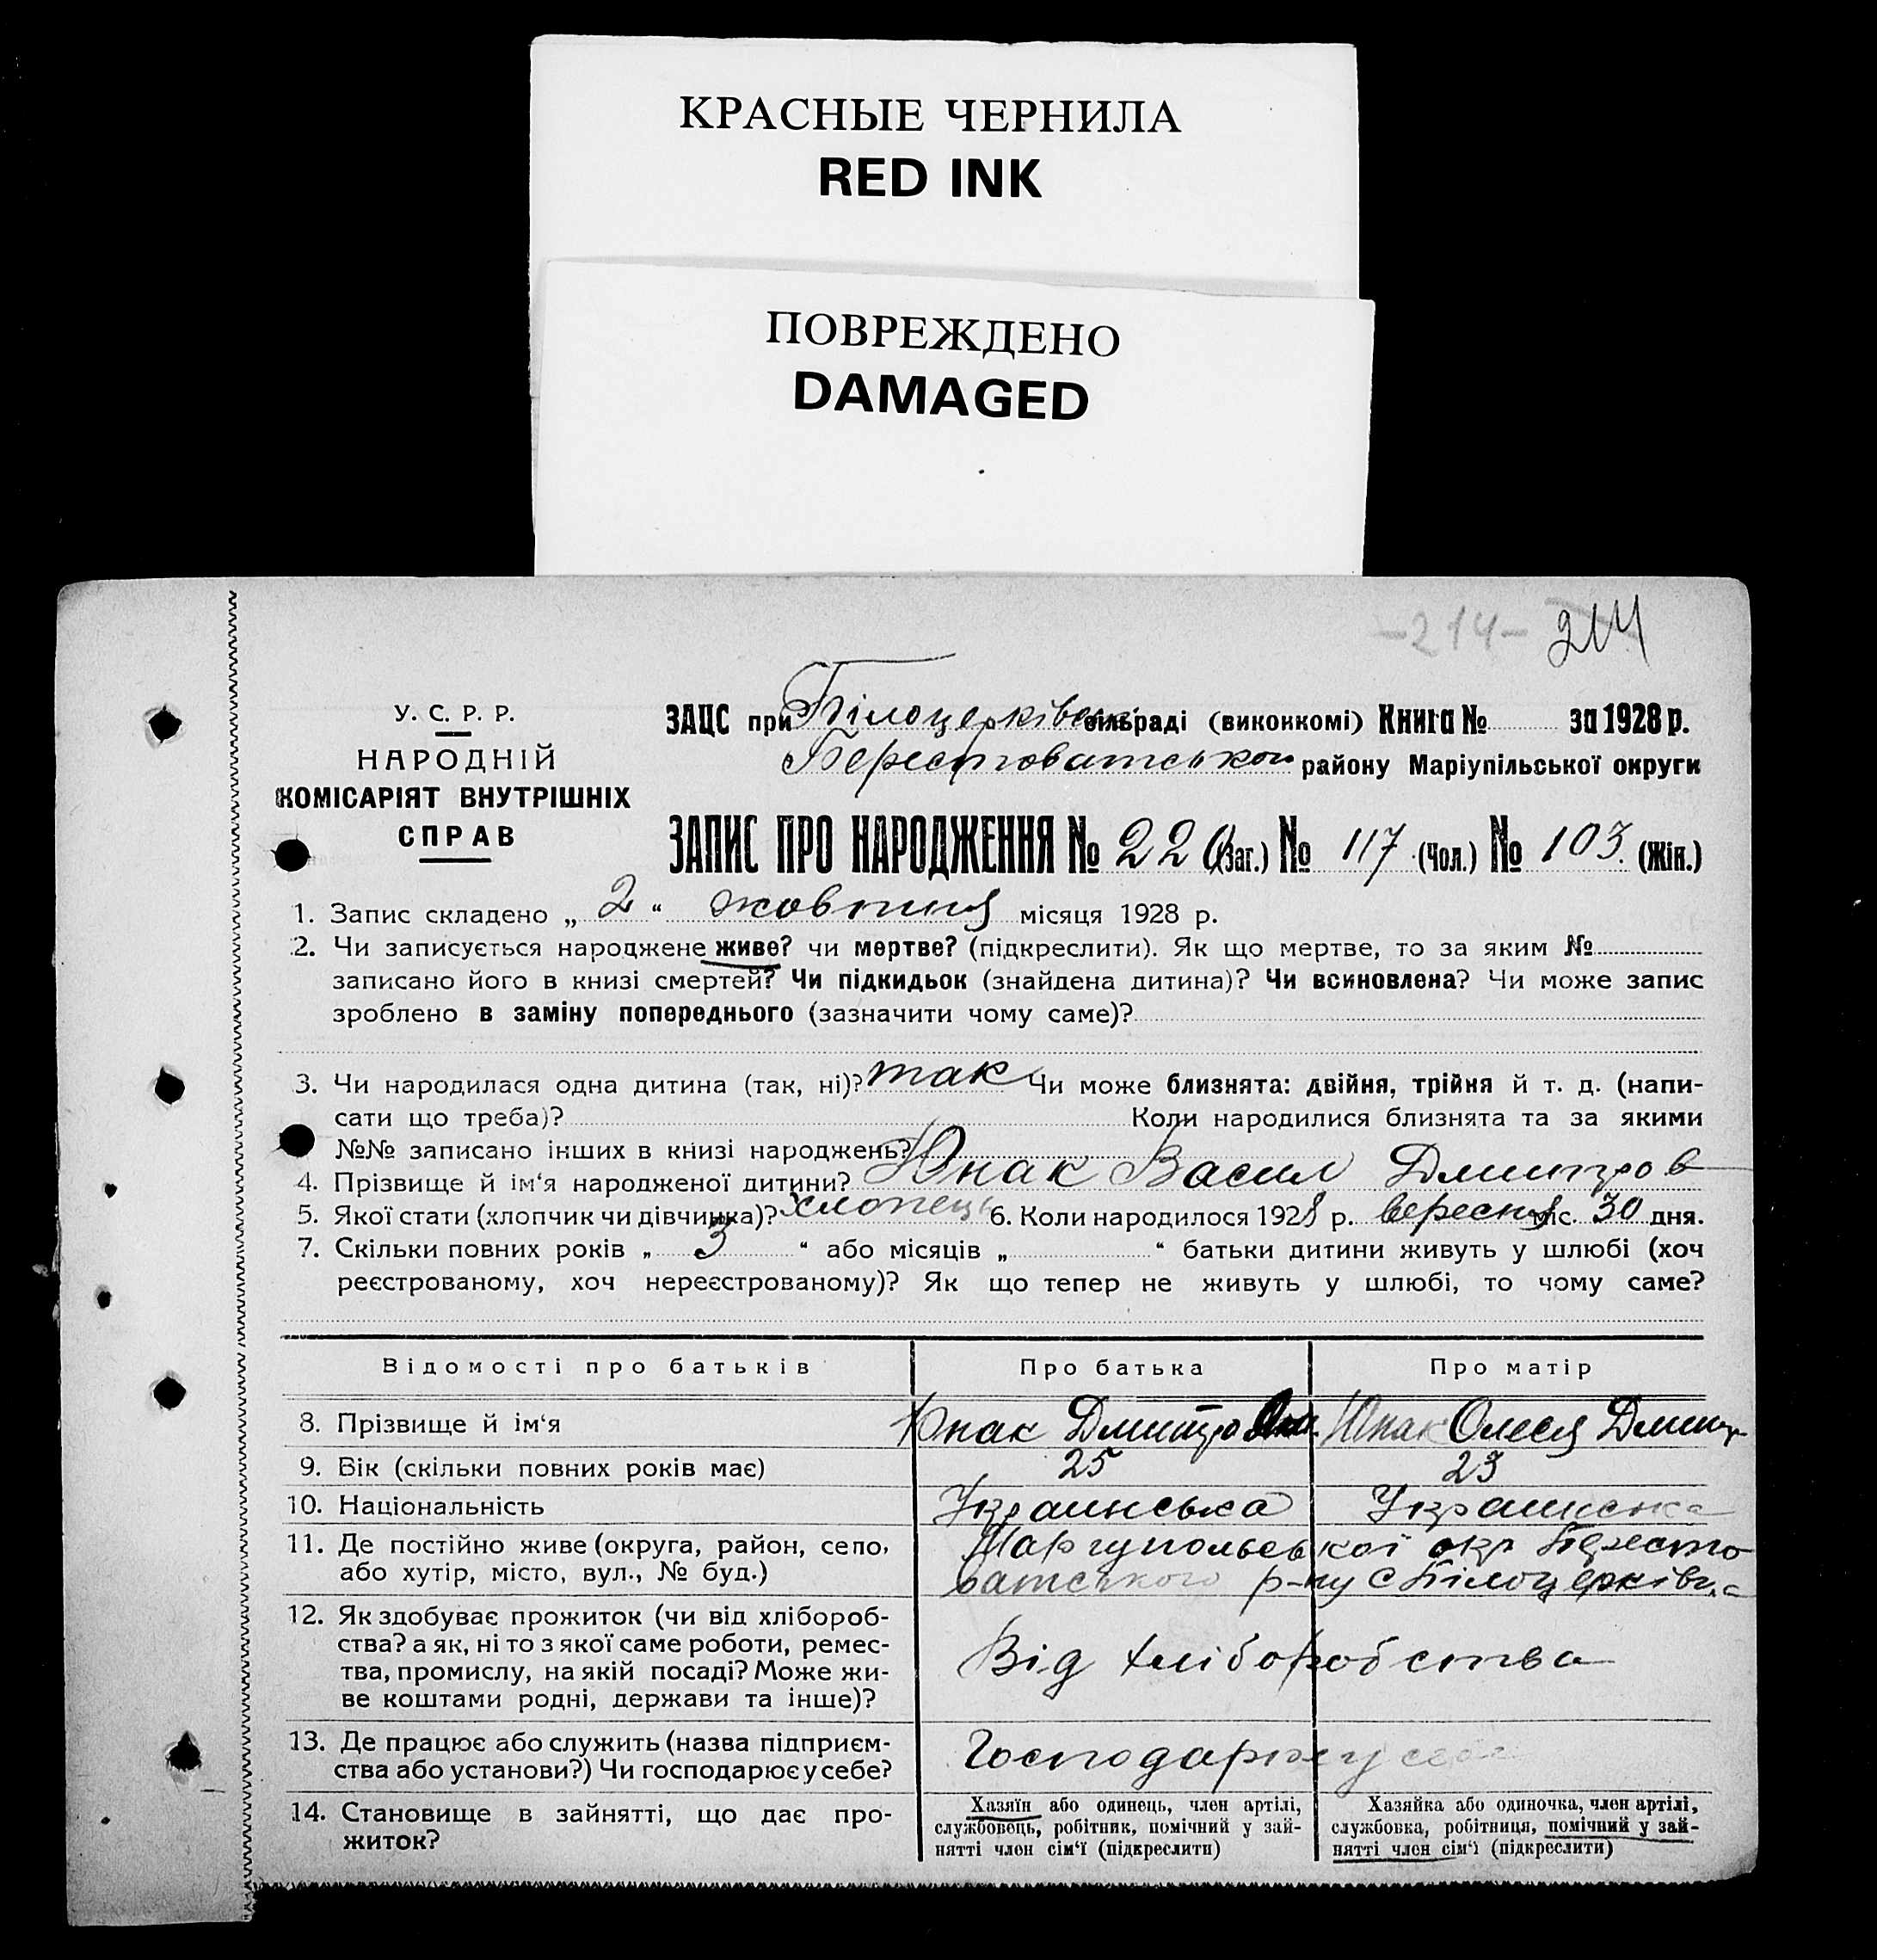 КРАСНЫЕ ЧЕРНИЛА
RED INK
ПОВРЕЖДЕНО
DAMAGED
-214- 214
У. С. Р. Р.
НАРОДНІЙ
КОМІСАРІЯТ ВНУТРІШНІХ
СПРАВ
ЗАЦС при Білоцерківськ сільраді (виконкомі) Книга № за 1928 р.
Берестоватського району Маріупільської округи
ЗАПИС ПРО НАРОДЖЕННЯ № 220 (Заг.) № 117 (Чол.) № 103. (Жін.)
1. Запис складено „ 2 “ жовтня місяця 1928 р.
2. Чи записується народжене живе? чи мертве? (підкреслити). Як що мертве, то за яким №
записано його в книзі смертей? Чи підкидьок (знайдена дитина)? Чи всиновлена? Чи може запис
зроблено в заміну попереднього (зазначити чому саме)?
3. Чи народилася одна дитина (так, ні)? так Чи може близнята: двійня, трійня й т. д. (напи-
сати що треба)? Коли народилися близнята та за якими
№№ записано інших в книзі народжень?
4. Прізвище й ім'я народженої дитини? Юнак Васил Дмитров
5. Якої стати (хлопчик чи дівчинка)? хлопець 6. Коли народилося 1928 р. вересня міс. 30 дня.
7. Скільки повних років „ 3 “ або місяців „ “ батьки дитини живуть у шлюбі (хоч
реєстрованому, хоч нереєстрованому)? Як що тепер не живуть у шлюбі, то чому саме?
Відомості про батьків Про батька Про матір
8. Прізвище й ім'я Юнак Дмитро Юнак Олеся Дмитр
9. Вік (скільки повних років має) 25 23
10. Національність Украинська Украинска
11. Де постійно живе (округа, район, село, Маріупольської окр Бересто
або хутір, місто, вул., № буд.) ватського р-ну с Білоцерківка
12. Як здобуває прожиток (чи від хлібороб-
ства? а як, ні то з якої саме роботи, ремес-
тва, промислу, на якій посаді? Може жи-
ве коштами родні, держави та інше)?
Від хліборобства
13. Де працює або служить (назва підприєм-
ства або установи?) Чи господарює у себе?
Господарює у себе
14. Становище в зайнятті, що дає про-
житок?
Хазяїн або одинець, член артілі,
службовець, робітник, помічний у зай-
нятті член сім'ї (підкреслити)
Хазяйка або одиночка, член артілі,
службовка, робітниця, помічний у зай-
нятті член сім'ї (підкреслити)